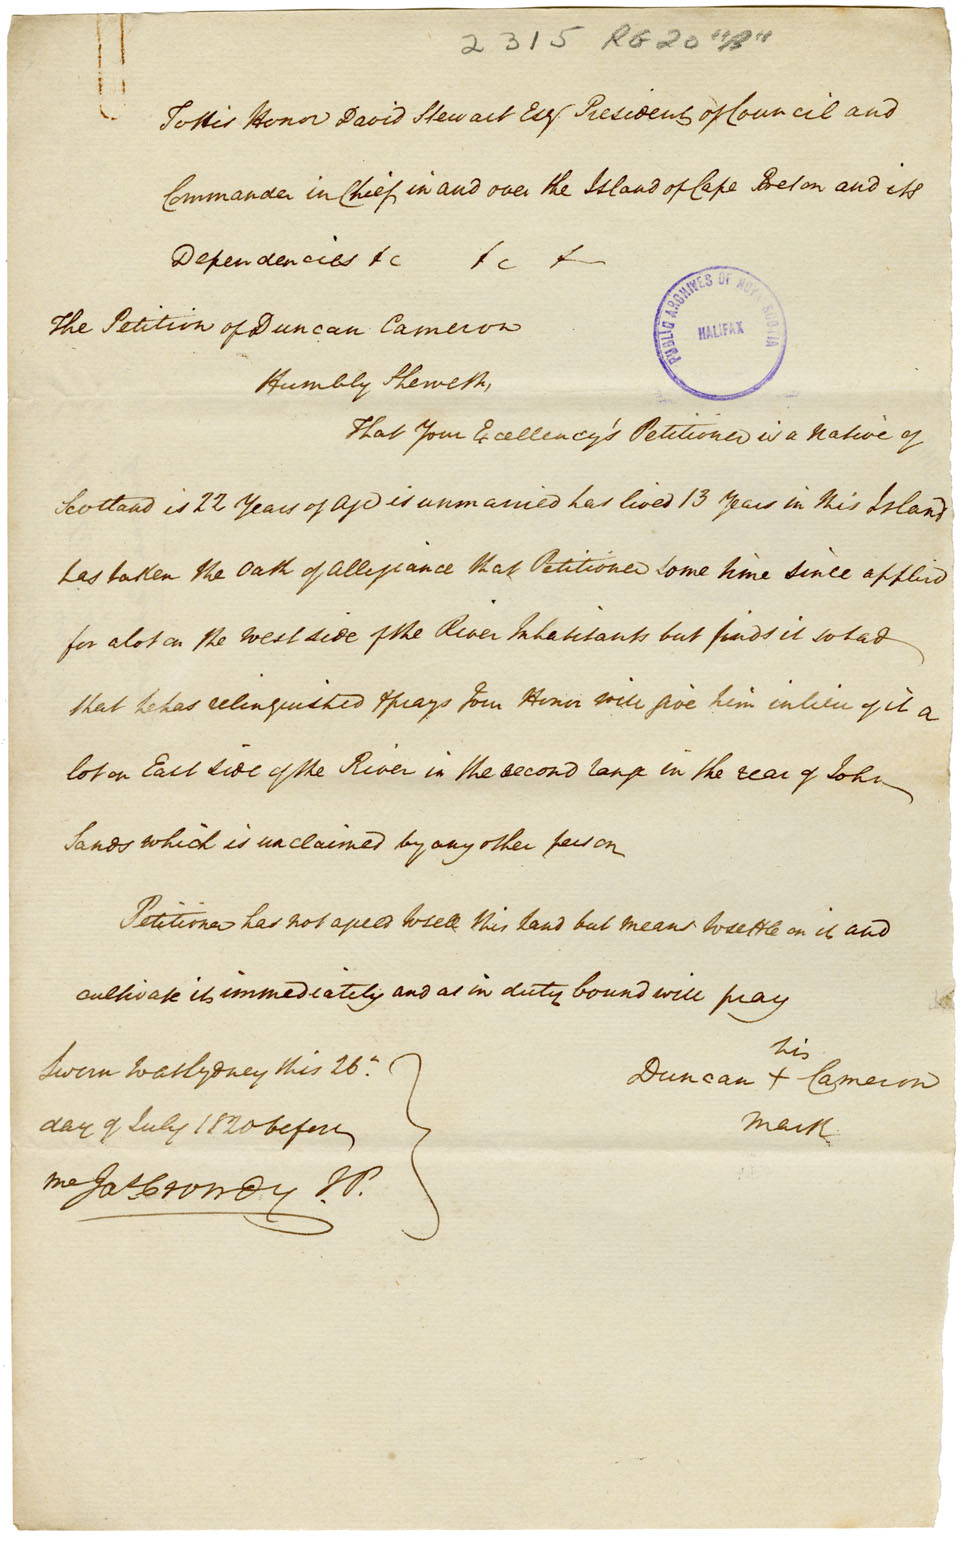 2315 RG 20 "B"
To His Honor David Stewart Esqr President of Council and
Commander in Chief in and over the Island of Cape Breton and its
Dependencies &c &c &
The Petition of Duncan Cameron
Humbly Sheweth,
That Your Excellency's Petitioner is a Native of
Scotland is 22 Years of Age is unmarried has lived 13 Years in this Island
has taken the Oath of Allegiance that Petitioner some time since applied
for a lot on the West side of the River Inhabitants but finds it so bad
that he has relinquished & prays Your Honor will give him in lieu of it a
lot on East side of the River in the second range in the rear of John
Sands which is unclaimed by any other person
Petitioner has not agreed to sell this land but means to settle on it and
cultivate it immediately and as in duty bound will pray
his
Duncan + Cameron
mark
Sworn to at Sydney this 26th
day of July 1820 before
me Jas Crowdy J.P.
PUBLIC ARCHIVES OF NOVA SCOTIA
HALIFAX